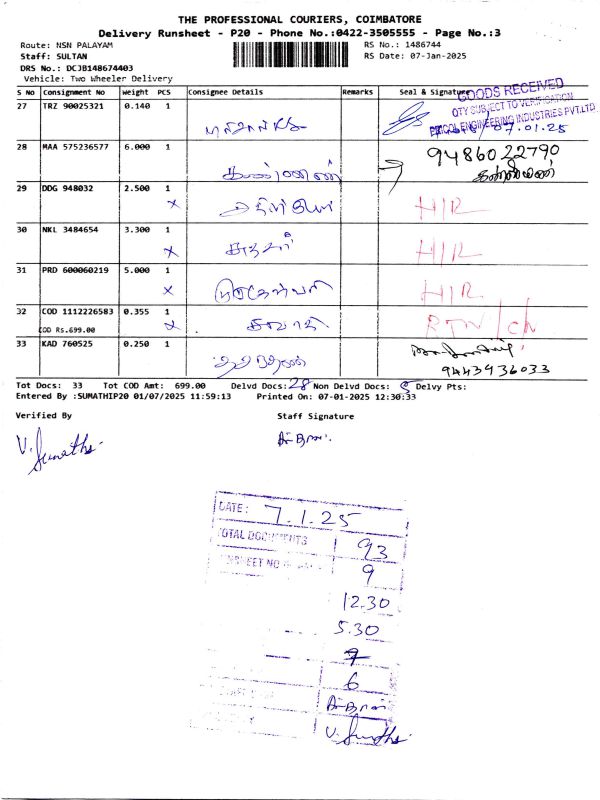 THE PROFESSIONAL COURIERS, COIMBATORE
Delivery Runsheet - P20 - Phone No.:0422-3505555 - Page No.:3
Route: NSN PALAYAM RS No.: 1486744
Staff: SULTAN RS Date: 07-Jan-2025
DRS No.: DCJB148674403
Vehicle: Two Wheeler Delivery
S No Consignment No Weight PCS Consignee Details Remarks Seal & Signature
GOODS RECEIVED
QTY SUBJECT TO VERIFICATION
ENGINEERING INDUSTRIES PVT.LTD.
27 TRZ 90025321 0.140 1 07.01.25
28 MAA 575236577 6.000 1 9486022790
29 DDG 948032 2.500 1 x H/R
30 NKL 3484654 3.300 1 x H/R
31 PRD 600060219 5.000 1 x H/R
32 COD 1112226583 0.355 1 x RTN/CN
COD Rs.699.00
33 KAD 760525 0.250 1 9443936033
Tot Docs: 33 Tot COD Amt: 699.00 Delvd Docs: 28 Non Delvd Docs: 5 Delvy Pts:
Entered By :SUMATHIP20 01/07/2025 11:59:13 Printed On: 07-01-2025 12:30:33
Verified By Staff Signature
V. Sumathi
DATE: 7.1.25
TOTAL DOCUMENTS 93
9
12.30
5.30
6
V. Sumathi